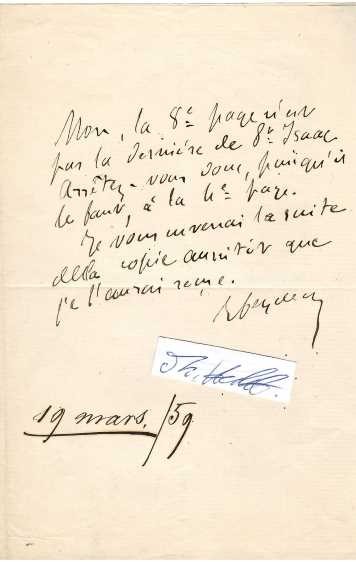 Non, la 8e page n'est
pas la dernière de 8r Isaac
Arrêtez-vous donc, puisqu'il
le faut, à la 4e page.
Je vous enverrai la suite
de la copie aussitôt que
je l'aurai reçue.
19 mars. /59